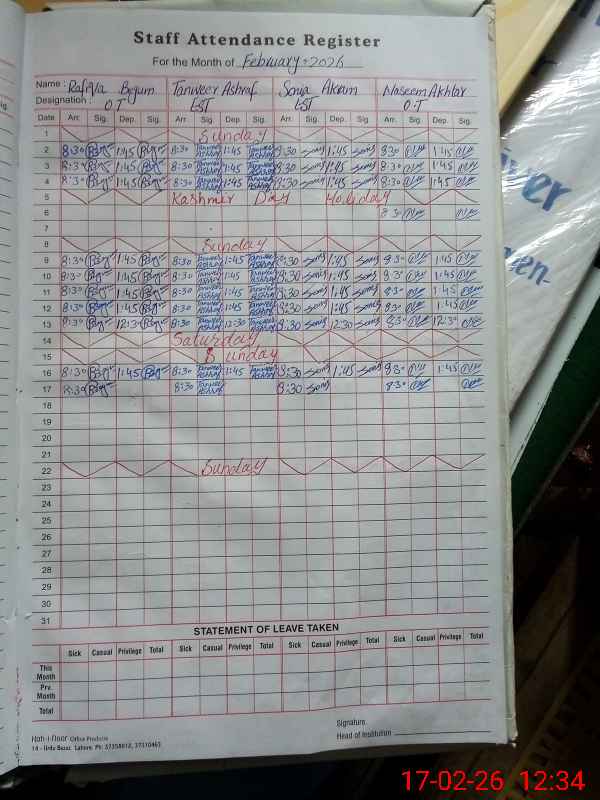 Staff Attendance Register
For the Month of February-2026
Name : Rafiya Begum Tanveer Ashraf Sonia Akram Naseem Akhtar
Designation : O.T EST EST O.T
Date Arr. Sig. Dep. Sig. Arr Sig. Dep. Sig. Arr. Sig. Dep. Sig. Arr. Sig. Dep. Sig.
1 Sunday
2 8:30 1:45 8:30 Tanveer Ashraf 1:45 Tanveer Ashraf 8:30 1:45 8:30 1:45
3 8:30 1:45 8:30 Tanveer Ashraf 1:45 Tanveer Ashraf 8:30 1:45 8:30 1:45
4 8:30 1:45 8:30 Tanveer Ashraf 1:45 Tanveer Ashraf 8:30 1:45 8:30 1:45
5 Kashmir Day Holiday
6 8:30
7
8 Sunday
9 8:30 1:45 8:30 Tanveer Ashraf 1:45 Tanveer Ashraf 8:30 1:45 8:30 1:45
10 8:30 1:45 8:30 Tanveer Ashraf 1:45 Tanveer Ashraf 8:30 1:45 8:30 1:45
11 8:30 1:45 8:30 Tanveer Ashraf 1:45 Tanveer Ashraf 8:30 1:45 8:30 1:45
12 8:30 1:45 8:30 Tanveer Ashraf 1:45 Tanveer Ashraf 8:30 1:45 8:30 1:45
13 8:30 12:30 8:30 Tanveer Ashraf 12:30 Tanveer Ashraf 8:30 12:30 8:30 12:30
14 Saturday
15 Sunday
16 8:30 1:45 8:30 Tanveer Ashraf 1:45 Tanveer Ashraf 8:30 1:45 8:30 1:45
17 8:30 8:30 Tanveer Ashraf 8:30 8:30
18
19
20
21
22 Sunday
23
24
25
26
27
28
29
30
31
STATEMENT OF LEAVE TAKEN
Sick Casual Privilege Total Sick Casual Privilege Total Sick Casual Privilege Total Sick Casual Privilege Total
This Month
Prv. Month
Total
Signature
Head of Institution
Koh-i-Noor Office Products
14 - Urdu Bazar, Lahore. Ph: 37358012, 37310463
17-02-26 12:34